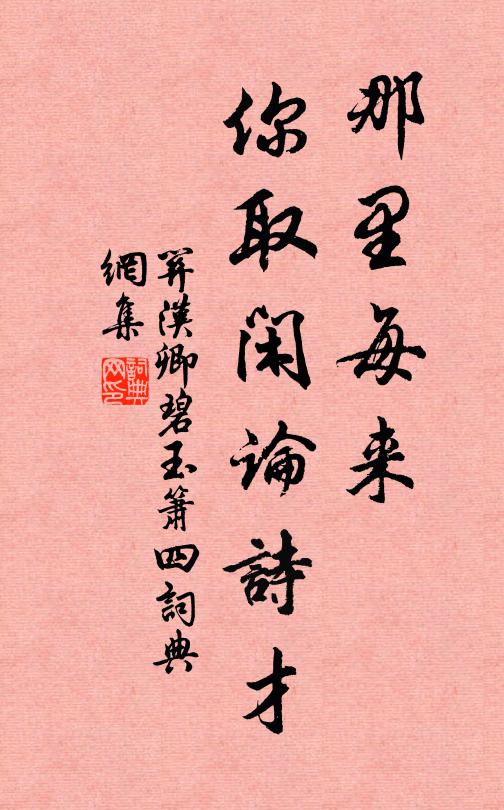 那里每来
你取闲論詩才
関漢卿碧玉簫四詞典
網集
詞典
网印